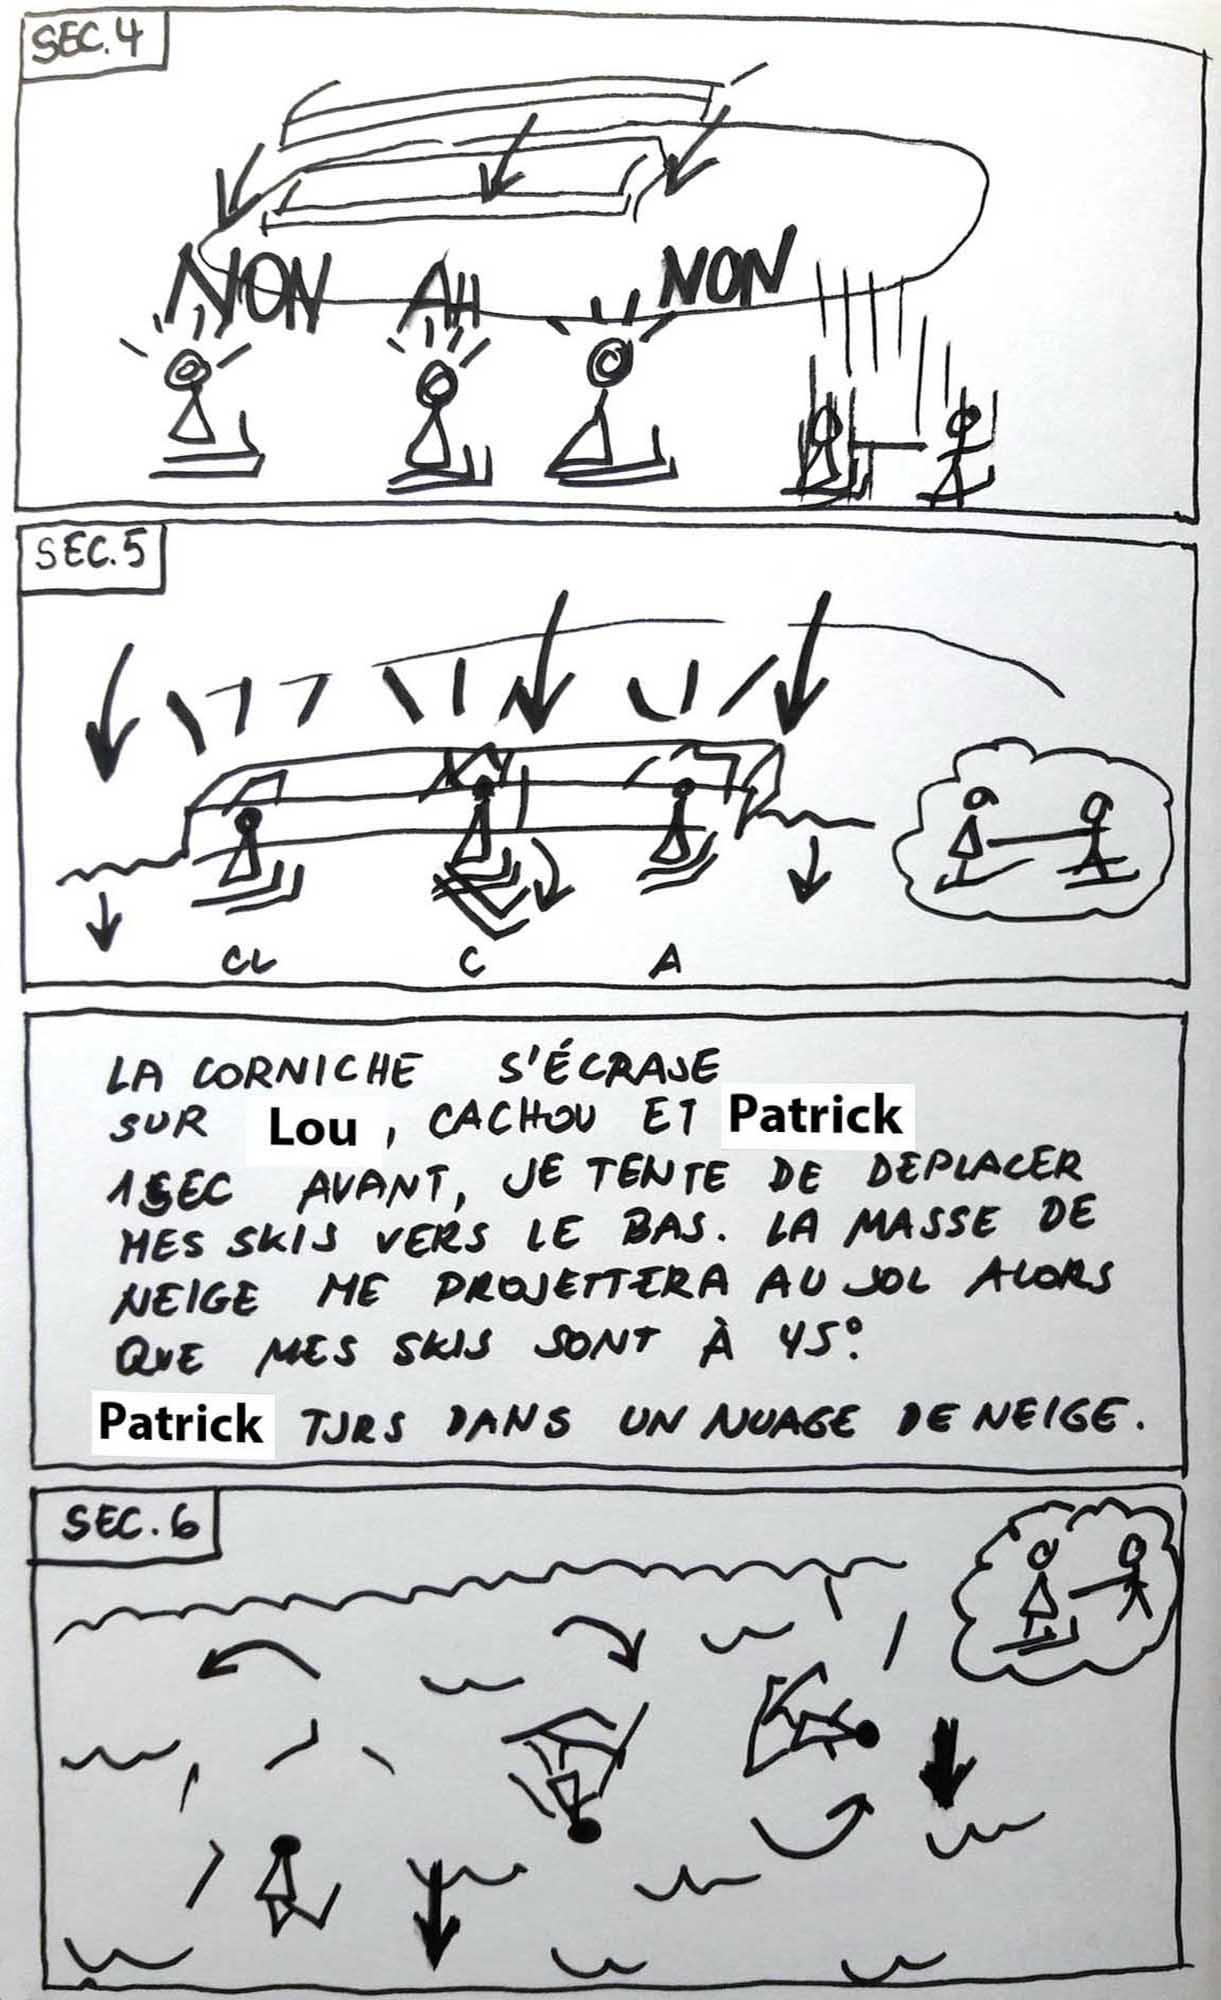 SEC.4
NON AH NON
SEC.5
CL C A
LA CORNICHE S'ÉCRASE
SUR Lou, CACHOU ET Patrick
1SEC AVANT, JE TENTE DE DEPLACER
MES SKIS VERS LE BAS. LA MASSE DE
NEIGE ME PROJETTERA AU SOL ALORS
QUE MES SKIS SONT À 45°.
Patrick TJRS DANS UN NUAGE DE NEIGE.
SEC.6